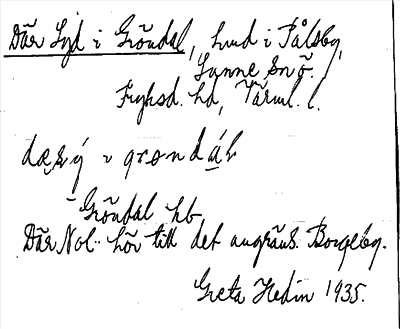 Där Syd i Gröndal, hmd i Pålsby,
Sunne sn ö.
Fryksd. hd, Värml. l.
dæṛ ý ı grөndál
Gröndal hb
Där Nol- hör till det angräns. Borgeby.
Greta Hedin 1935.